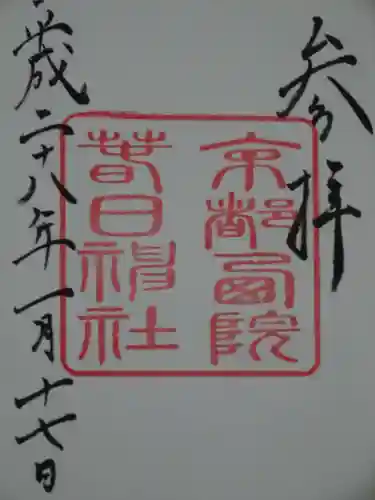 参拝
京都西院
春日神社
平成二十八年一月十七日